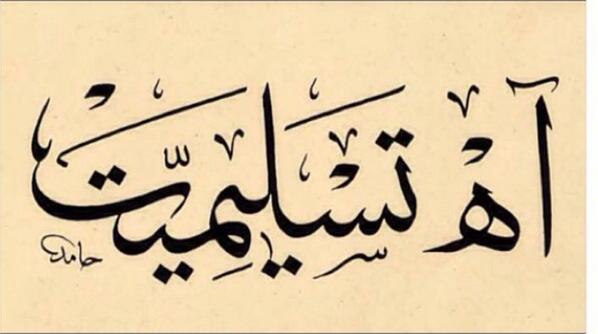 آه تسليمِيّت
حامد